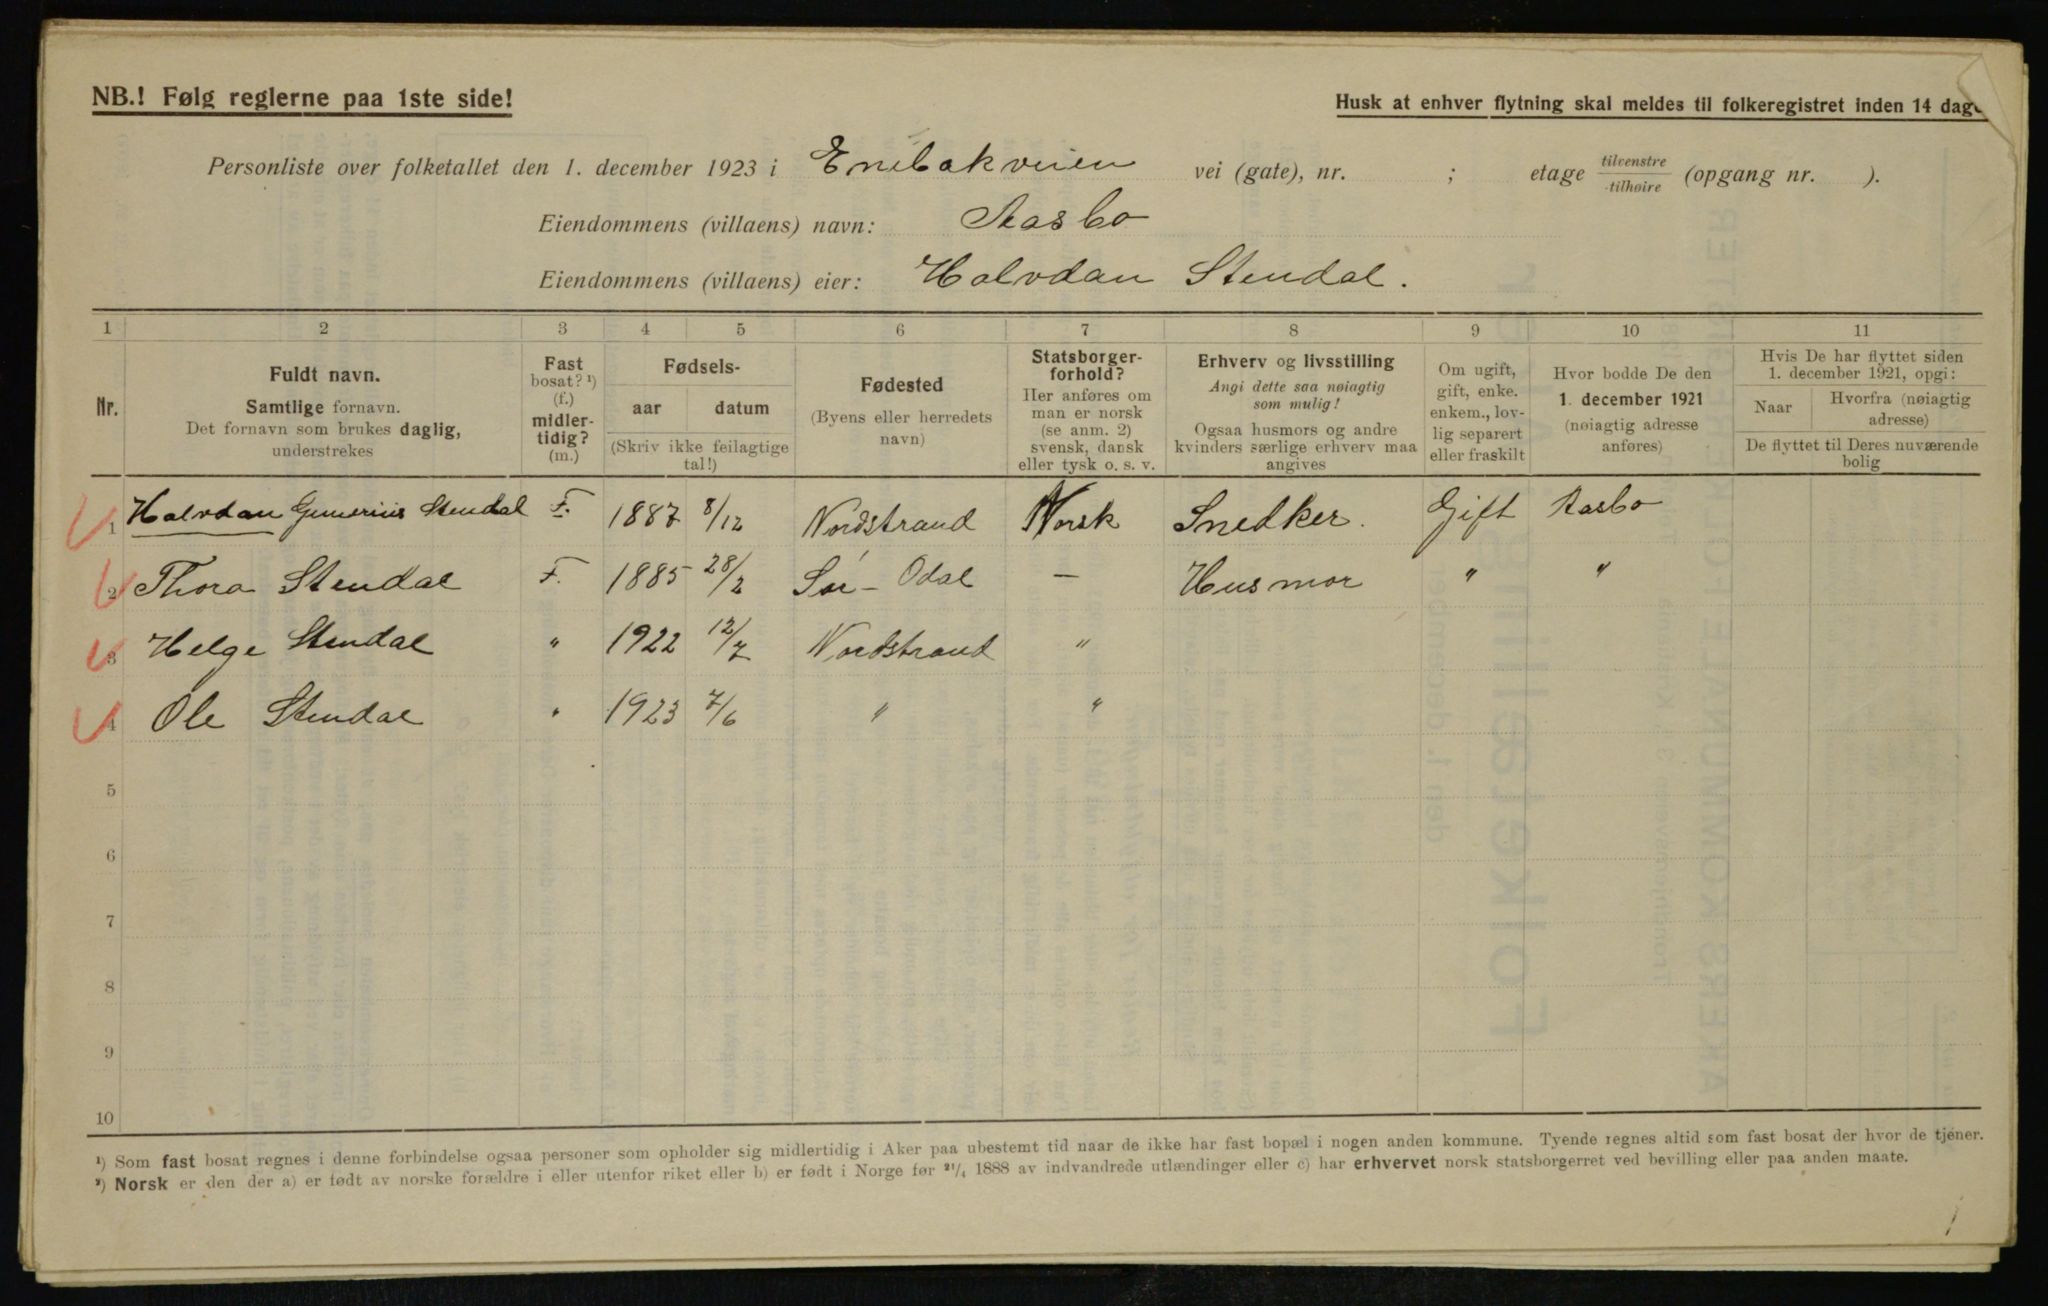 NB.! Følg reglerne paa 1ste side!
Husk at enhver flytning skal meldes til folkeregistret inden 14 dage
Personliste over folketallet den 1. december 1923 i Enebakveien vei (gate), nr. ; etage tilvenstre / tilhøire (opgang nr. ).
Eiendommens (villaens) navn: Aasbo
Eiendommens (villaens) eier: Halvdan Stendal.
1 2 3 4 5 6 7 8 9 10 11
Nr.
Fuldt navn.
Samtlige fornavn.
Det fornavn som brukes daglig,
understrekes
Fast
bosat? ¹)
(f.)
midler-
tidig?
(m.)
Fødsels-
aar datum
(Skriv ikke feilagtige
tal!)
Fødested
(Byens eller herredets
navn)
Statsborger-
forhold?
Her anføres om
man er norsk
(se anm. 2)
svensk, dansk
eller tysk o. s. v.
Erhverv og livsstilling
Angi dette saa nøiagtig
som mulig!
Ogsaa husmors og andre
kvinders særlige erhverv maa
angives
Om ugift,
gift, enke.
enkem., lov-
lig separert
eller fraskilt
Hvor bodde De den
1. december 1921
(nøiagtig adresse
anføres)
Hvis De har flyttet siden
1. december 1921, opgi:
Naar
Hvorfra (nøiagtig
adresse)
De flyttet til Deres nuværende
bolig
1 Halvdan Gunerius Stendal F. 1887 8/12 Nordstrand Norsk Snedker. Gift Aasbo
2 Thora Stendal F. 1885 28/2 Sør-Odal — Husmor " "
3 Helge Stendal " 1922 12/7 Nordstrand "
4 Ole Stendal " 1923 7/6 " "
5
6
7
8
9
10
¹) Som fast bosat regnes i denne forbindelse ogsaa personer som opholder sig midlertidig i Aker paa ubestemt tid naar de ikke har fast bopæl i nogen anden kommune. Tyende regnes altid som fast bosat der hvor de tjener.
²) Norsk er den der a) er født av norske forældre i eller utenfor riket eller b) er født i Norge før ²¹/₄ 1888 av indvandrede utlændinger eller c) har erhvervet norsk statsborgerret ved bevilling eller paa anden maate.